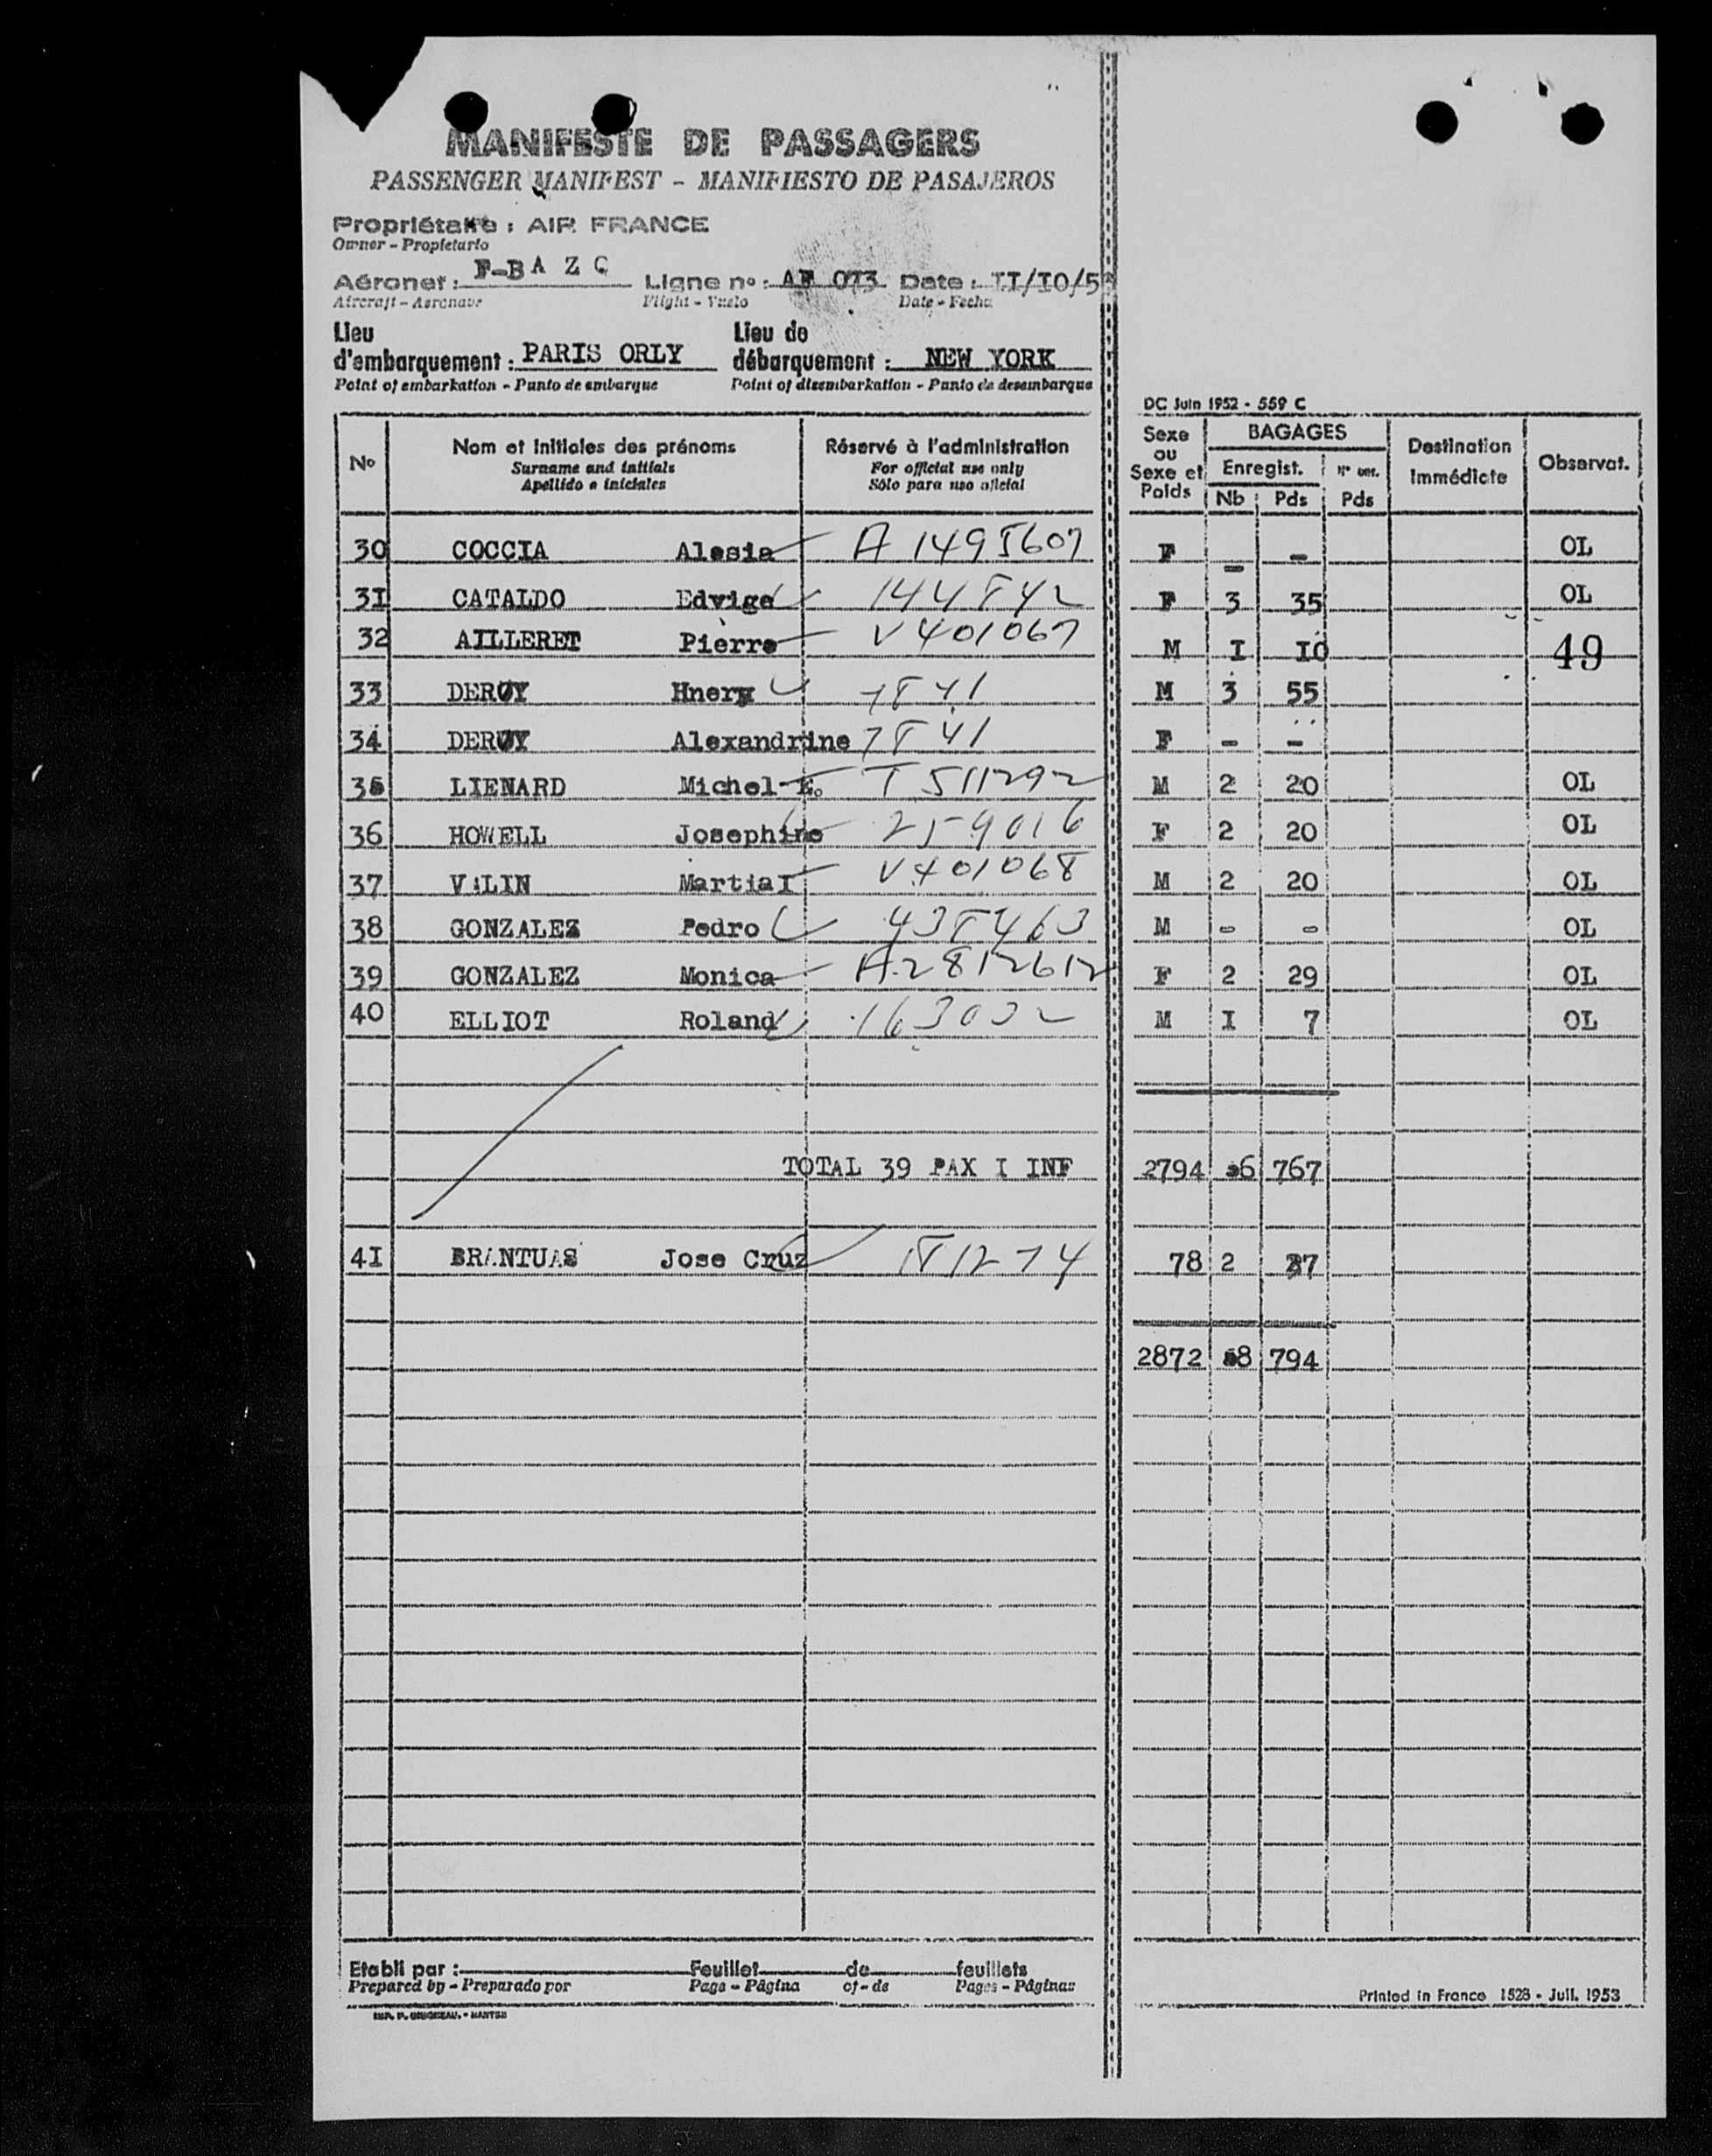 MANIFESTE DE PASSAGERS
PASSENGER MANIFEST - MANIFIESTO DE PASAJEROS
Propriétaire : AIR FRANCE
Owner - Propietario
Aéronef : F-BAZC Ligne nº : AF 073 Date : II/IO/5
Aircraft - Aeronave Flight - Vuelo Date - Fecha
Lieu d'embarquement : PARIS ORLY Lieu de débarquement : NEW YORK
Point of embarkation - Punto de embarque Point of disembarkation - Punto de desembarque
DC Juin 1952 - 559 C
Nº Nom et initiales des prénoms Réservé à l'administration Sexe ou Sexe et Poids BAGAGES Destination Immédiate Observat.
Surname and initials For official use only Enregist.
Apellido e iniciales Sólo para uso oficial Nb Pds Pds
30 COCCIA Alesia A 1495607 F - - OL
3I CATALDO Edvige 144842 F 3 35 OL
32 AILLERET Pierre V401067 M I IO 49
33 DEROY Hnery 7841 M 3 55
34 DEROY Alexandrine 7841 F - -
35 LIENARD Michel-E. T 511292 M 2 20 OL
36 HOWELL Josephine 259016 F 2 20 OL
37 VALIN Martial V401068 M 2 20 OL
38 GONZALEZ Pedro 438463 M - - OL
39 GONZALEZ Monica A2812612 F 2 29 OL
40 ELLIOT Roland 163032 M I 7 OL
TOTAL 39 PAX I INF 2794 6 767
4I BRANTUAS Jose Cruz 78 2 27
2872 8 794
Etabli par : Feuillet de feuillets
Prepared by - Preparado por Page - Página of - de Pages - Páginas
Printed in France 1528 - Juil. 1953